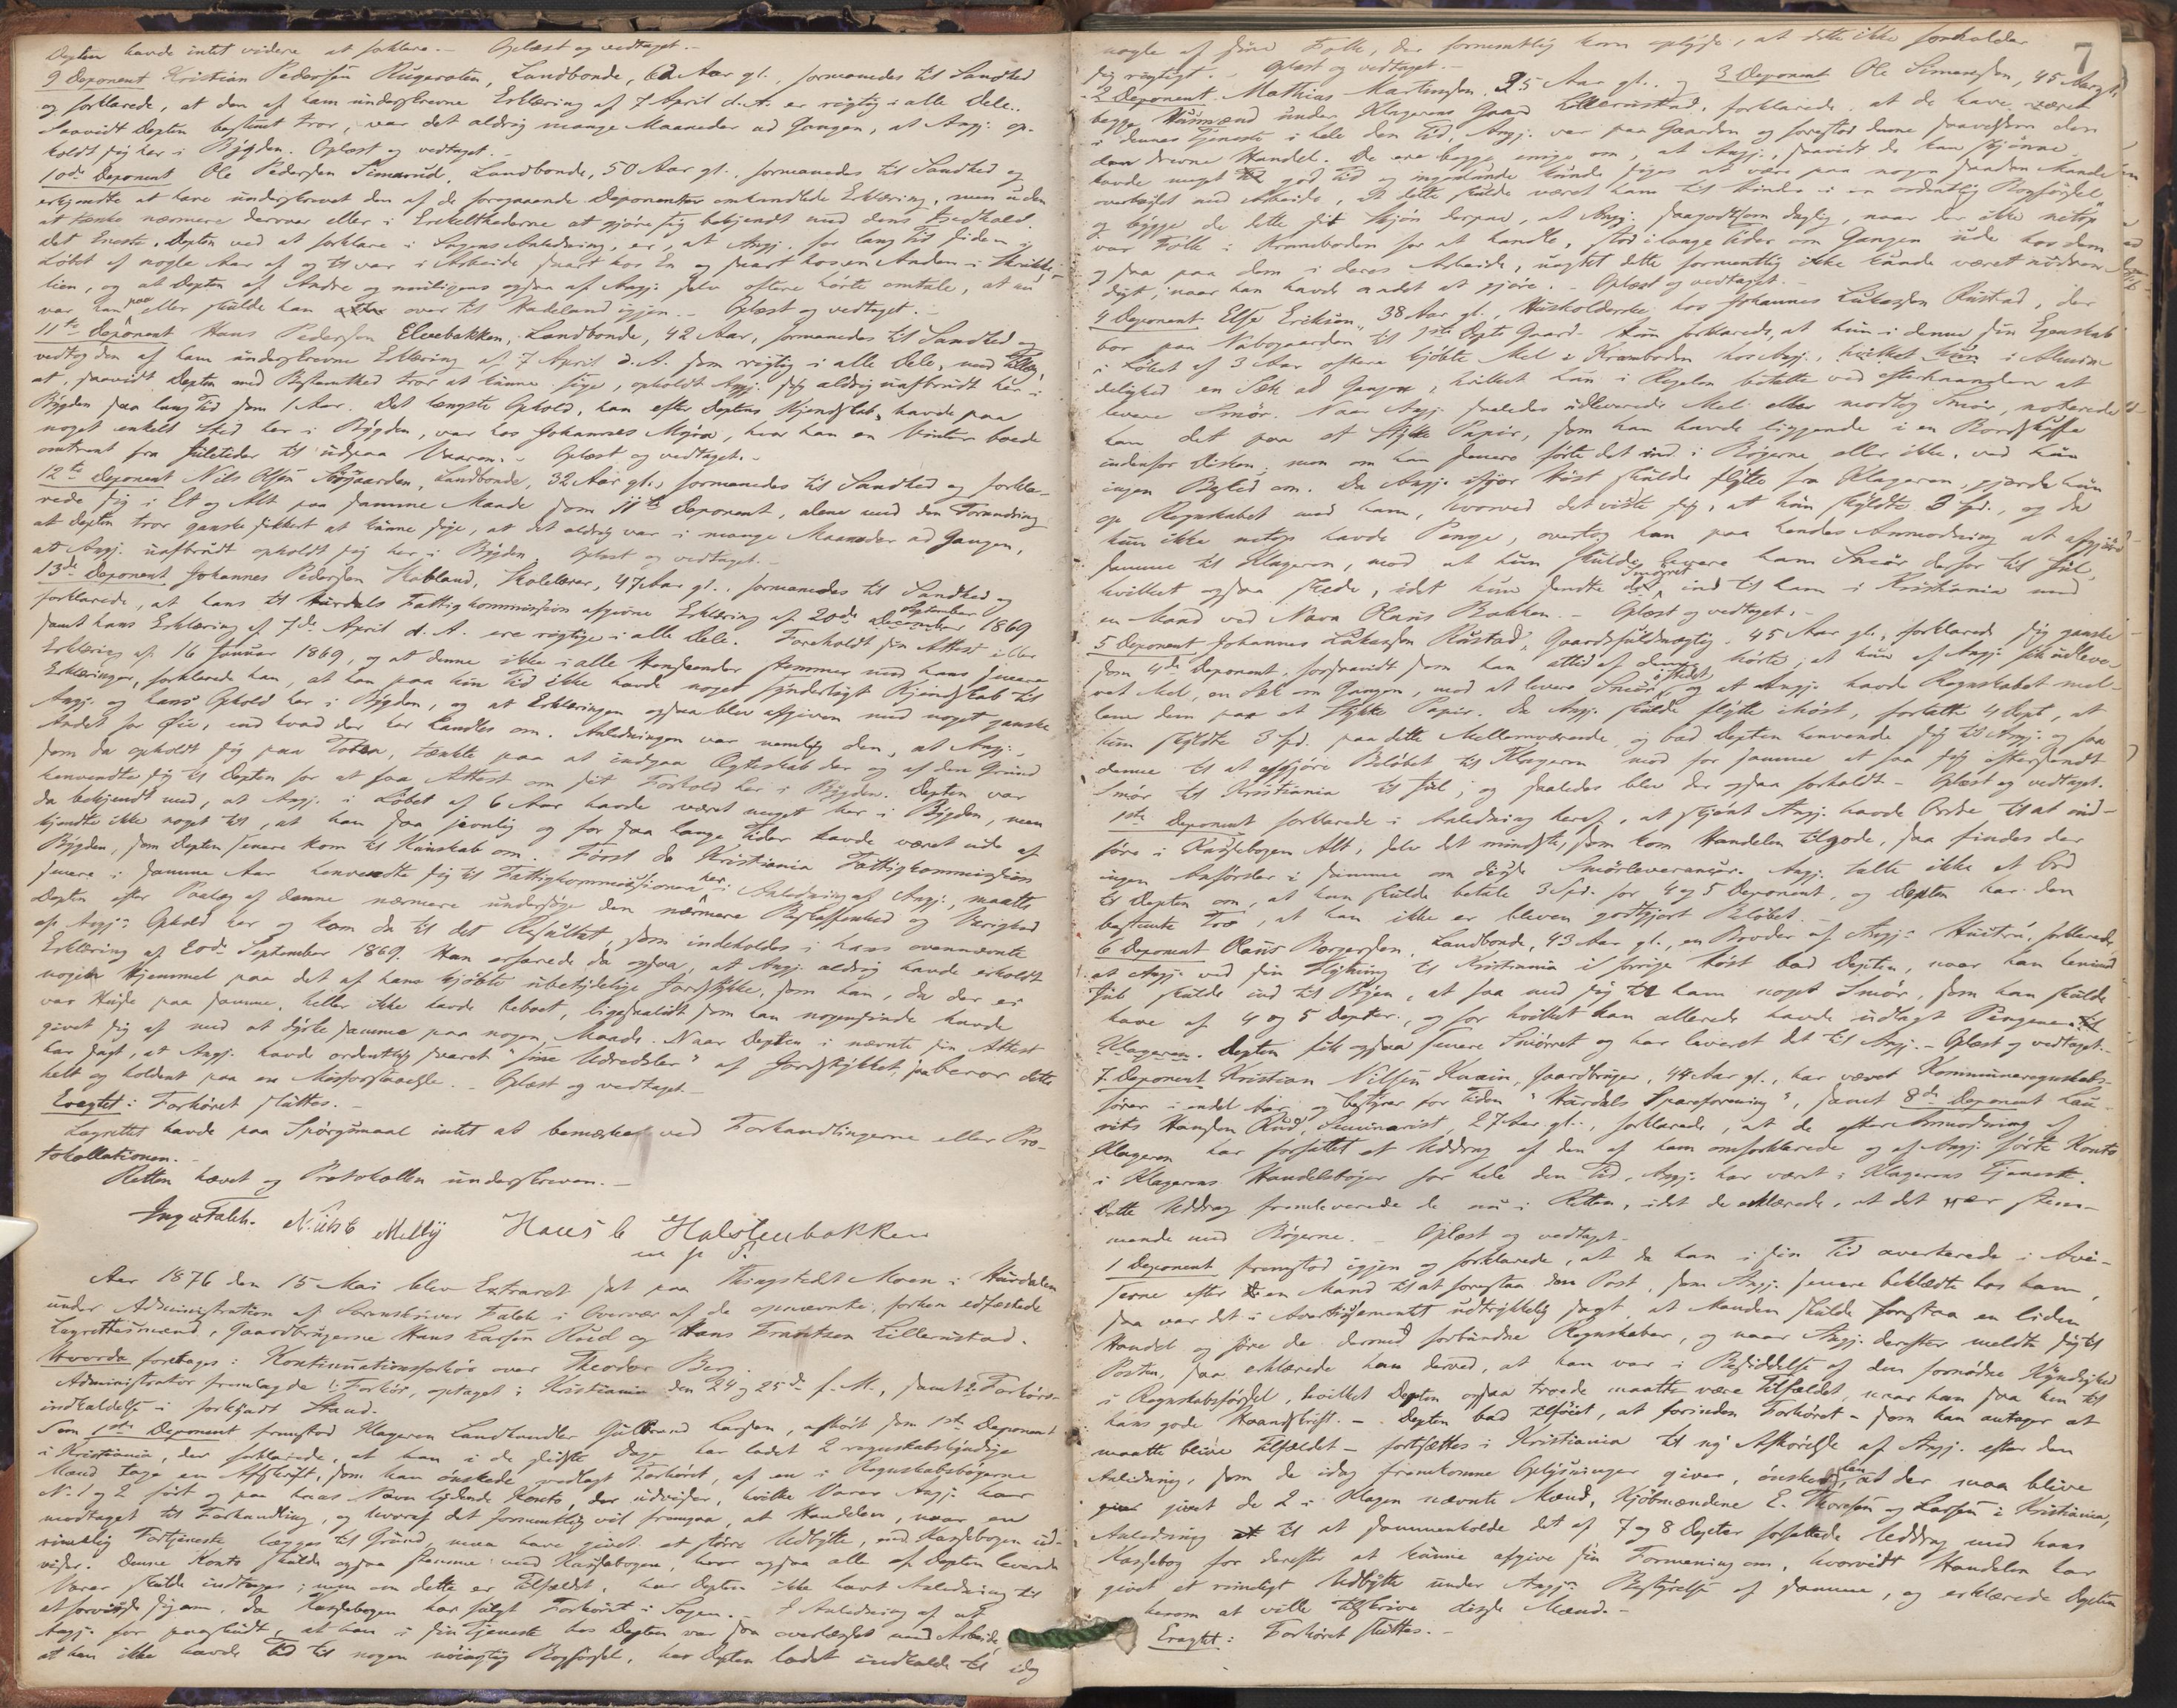 Depten havde intet videre at forklare. – Oplæst og vedtaget. –
9 Deponent Kristian Pedersen Rugeroten, Landbonde, 62 Aar gl. formanedes til Sandhed
og forklarede, at den af ham underskrevne Erklæring af 7 April d. A. er rigtig i alle Dele.
Saavidt Depten bestemt tror, var det aldrig mange Maaneder ad Gangen, at Angj. op-
holdt sig her i Bygden. Oplæst og vedtaget. –
10de Deponent Ole Pedersen Simarud, Landbonde, 50 Aar gl., formanedes til Sandhed og
erkjendte at have underskrevet den af de foregaaende Deponenter omhandlede Erklæring, men uden
at tænke nærmere derover eller i Enkelthederne at gjøre sig bekjendt med dens Indhold.
Det Eneste, Depten ved at forklare i Sagens Anledning, er, at Angj. for lang Tid siden i
Løbet af nogle Aar af og til var i Arbeide snart hos En og snart hos en Anden i
lien, og at Depten af Andre og muligens ogsaa af Angj. selv oftere hørte omtale, at nu
var han paa eller skulde han over til Hadeland igjen. – Oplæst og vedtaget. –
11te Deponent Hans Pedersen Elvebakken, Landbonde, 42 Aar, formanedes til Sandhed og
vedtog den af ham underskrevne Erklæring af 7 April d. A. som rigtig i alle Dele, med Tillæg,
at, saavidt Depten med Bestemthed tror at kunne sige, opholdt Angj. sig aldrig uafbrudt her i
Bygden saa lang Tid som 1 Aar. Det længste Ophold, han efter Deptens Kjendskab, havde paa
noget enkelt Sted her i Bygden, var hos Johannes Myra, hvor han en Vinter boede
omtrent fra Juletider til udpaa Vaaren. – Oplæst og vedtaget. –
12te Deponent Nils Olsen, Landbonde, 32 Aar gl., formanedes til Sandhed og forkla-
rede sig i Et og Alt paa samme Maade som 11te Deponent, alene med den Forandring
at Depten tror ganske sikkert at kunne sige, at det aldrig var i mange Maaneder ad Gangen,
at Angj. uafbrudt opholdt sig her i Bygden. Oplæst og vedtaget. –
13de Deponent Johannes Pedersen Skabland, Skolelærer, 47 Aar gl., formanedes til Sandhed og
forklarede, at hans til Hurdals Fattigkommission afgivne Erklæring af 20de December September 1869
samt hans Erklæring af 7de April d. A. ere rigtige i alle Dele. Foreholdt sin Attest eller
Erklæring af 16 Januar 1869, og at denne ikke i alle Henseender stemmer med hans senere
Erklæringer, forklarede han, at han paa hin Tid ikke havde noget synderligt Kjendskab til
Angj. og hans Ophold her i Bygden, og at Erklæringen ogsaa blev afgiven med noget ganske
Andet for Øie, end hvad der her handles om. Anledningen var nemlig den, at Angj.,
som da opholdt sig paa Toten, tænkte paa at indgaa Ægteskab der og af den Grund
henvendte sig til Depten for at faa Attest om sit Forhold her i Bygden. Depten var
da bekjendt med, at Angj. i Løbet af 6 Aar havde været meget her i Bygden, men
kjendte ikke noget til, at han saa jevnlig og for saa lange Tider havde været ude af
Bygden, som Depten senere kom til Kundskab om. Først da Kristiania Fattigkommission
senere i samme Aar henvendte sig til Fattigkommissionen her i Anledning af Angj., maatte
Depten efter Paalæg af denne nærmere undersøge den nærmere Beskaffenhed og Varighed
af Angj.s Ophold her og kom da til det Resultat, som indeholdes i hans ovennævnte
Erklæring af 20de September 1869. Han erfarede da ogsaa, at Angj. aldrig havde erholdt
nogen Hjemmel paa det af ham kjøbte ubetydelige Jordstykke, som han, da der ei
var Huse paa samme, heller ikke havde beboet, ligesaalidt som han nogensinde havde
givet sig af med at dyrke samme paa nogen Maade. Naar Depten i nævnte sin Attest
har sagt, at Angj. havde ordentlig svaret "sine Udredsler" af Jordstykket, saa beror dette
helt og holdent paa en Misforstaaelse. – Oplæst og vedtaget. –
Eragtet: Forhøret sluttes. –
Lagrettet havde paa Spørgsmaal intet at bemærke ved Forhandlingerne eller Pro-
tokollationen. –
Retten hævet og Protokollen underskreven. –
Ingv. Falch. Hans C Halstenbakken
m p P.
Aar 1876 den 15 Mai blev Extraret sat paa Thingstedet Moen i Hurdalen
under Administration af Sorenskriver Falch i Overvær af de opnævnte, forhen edfæstede
Lagrettesmænd, Gaardbrugerne Hans Larsen Rud og Hans Frantsen Lillernstad.
Hvorda foretages: Kontinuationsforhør over Theodor Berg.
Administrator fremlagde 1: Forhør, optaget i Kristiania den 24 og 25de f. M., samt 2: Forhørs-
indkaldelse i forkyndt Stand.
Som 1ste Deponent fremstod Klageren Landhandler Gulbrand Larsen, afhørt som 1ste Deponent
i Kristiania, der forklarede, at han i de sidste Dage har ladet 2 regnskabskyndige
Mænd tage en Afskrift, som han ønskede vedlagt Forhøret, af en i Regnskabsbøgerne
No. 1 og 2 ført og paa hans Navn lydende Konto, der udviser, hvilke Varer Angj. har
modtaget til Forhandling, og hvoraf det formentlig vil fremgaa, at Handelen, naar en
rimelig Fortjeneste lægges til Grund, maa have givet et større Udbytte, end Kassebogen ud-
viser. Denne Konto skulde ogsaa stemme med Kassebogen, hvor ogsaa alle af Depten leverede
Varer skulde indtages; men om dette er Tilfældet, har Depten ikke havt Anledning til
at forvisse sig om, da Kassebogen har fulgt Forhøret i Sagen. – I Anledning af at
Angj. har paaskudt, at han i sin Tjeneste hos Depten var saa overlæsset med Arbeide,
at han ikke havde Tid til nogen nøiagtig Bogførsel, har Depten ladet indkalde til idag
7
nogle af sine Folk, der formentlig kan oplyse, at dette ikke forholder
sig rigtigt. – Oplæst og vedtaget. –
2 Deponent Mathias Martinsen, 35 Aar gl., og 3 Deponent Ole Simensen, 45 Aar gl.,
begge Husmænd under Klagerens Gaard Lillernstad, forklarede, at de have været
i dennes Tjeneste i hele den Tid, Angj. var paa Gaarden og forestod denne saavelsom den
der drevne Handel. De ere begge enige om, at Angj., saavidt de kan skjønne,
havde meget god Tid og ingenlunde kunde siges at være paa nogen saadan Maade
overlæsset med Arbeide, at dette skulde været ham til Hinder i en ordentlig Bogførsel,
og bygge de dette sit Skjøn derpaa, at Angj. saagodtsom daglig, naar der ikke netop
var Folk i Kramboden for at handle, stod i lange Tider om Gangen ude hos dem
og saa paa dem i deres Arbeide, uagtet dette formentlig ikke kunde været nødven-
digt, naar han havde andet at gjøre. – Oplæst og vedtaget. –
4 Deponent Else Eriksen, 38 Aar gl., Husholderske hos Johannes Lukassen Rustad, der
bor paa Nabogaarden til 1ste Depts Gaard. Hun forklarede, at hun i denne sin Egenskab
i Løbet af 3 Aar oftere kjøbte Mel i Kramboden hos Angj., hvilket hun i Almin-
delighed en Sæk ad Gangen, hvilket hun i Regelen betalte ved efterhaanden at
levere Smør. Naar Angj. saaledes udleverede Mel eller modtog Smør, noterede
han det paa et Stykke Papir, som han havde liggende i en Bordskuffe
indenfor Disken; men om han senere førte det ind i Bøgerne eller ikke, ved hun
ingen Besked om. Da Angj. ifjor Høst skulde flytte fra Klageren, gjorde hun
op Regnskabet med ham, hvorved det viste sig, at hun skyldte 3 Spd., og da
hun ikke netop havde Penge, overtog han paa hendes Anmodning at afgjøre
samme til Klageren, mod at hun skulde levere ham Smør derfor til Jul,
hvilket ogsaa skede, idet hun sendte Smøret ind til ham i Kristiania med
en Mand ved Navn Olaus Bakken. – Oplæst og vedtaget. –
5 Deponent Johannes Lukassen Rustad, Gaardsfuldmægtig, 45 Aar gl., forklarede sig ganske
som 4de Deponent, forsaavidt som han altid af denne hørte, at hun af Angj. fik udleve-
ret Mel, en Sæk om Gangen, mod at levere Smør istedet, og at Angj. havde Regnskabet mel-
lem dem paa et Stykke Papir. Da Angj. skulde flytte ihøst, fortalte 4 Dept, at
hun skyldte 3 Spd. paa dette Mellemværende, og bad Depten henvende sig til Angj. og faa
denne til at afgjøre Beløbet til Klageren mod for samme at faa sig eftersendt
Smør til Kristiania til Jul; og saaledes blev der ogsaa forholdt. – Oplæst og vedtaget.
1ste Deponent forklarede i Anledning heraf, at skjønt Angj. havde Ordre til at ind-
føre i Kassebogen Alt, selv det mindste, som kom Handelen tilgode, saa findes der
ingen Anførsler i samme om disse Smørleverancer. Angj. talte ikke et Ord
til Depten om, at han skulde betale 3 Spd. for 4 og 5 Deponent, og Depten har den
bestemte Tro, at han ikke er bleven godtgjort Beløbet. –
6 Deponent Olaus Borgersen, Landbonde, 43 Aar gl., en Broder af Angj.s Hustru, forklarede,
at Angj. ved sin Flytning til Kristiania i forrige Høst bad Depten, naar han henimod
Jul skulde ind til Byen, at faa med sig til ham noget Smør, som han skulde
have af 4 og 5 Depter, og for hvilket han allerede havde udlagt Pengene til
Klageren. Depten fik ogsaa senere Smørret og har leveret det til Angj. – Oplæst og vedtaget. –
7. Deponent Kristian Nilsen Knain, Gaardbruger, 44 Aar gl., har været Kommuneregnskabs-
fører i endel Aar og bestyrer for Tiden "Hurdals Spareforening", samt 8de Deponent Lau-
rits Hansen Rud, Seminarist, 27 Aar gl., forklarede, at de efter Anmodning af
Klageren har forfattet et Uddrag af den af ham omforklarede og af Angj. førte Konto
i Klagerens Handelsbøger for hele den Tid, Angj. har været i Klagerens Tjeneste.
Dette Uddrag fremleverede de nu i Retten, idet de erklærede, at det er stem-
mende med Bøgerne. – Oplæst og vedtaget. –
1 Deponent fremstod igjen og forklarede, at da han i sin Tid averterede i Avi-
serne efter en Mand til at forestaa den Post, som Angj. senere beklædte hos ham,
saa var det i Avertissementet udtrykkelig sagt, at Manden skulde forestaa en liden
Handel og føre de dermed forbundne Regnskaber, og naar Angj. derefter meldte sig til
Posten, saa erklærede han derved, at han var i Besiddelse af den fornødne Kyndighed
i Regnskabsførsel, hvilket Depten ogsaa troede maatte være Tilfældet, naar han saa hen til
hans gode Haandskrift. – Depten bad tilføiet, at forinden Forhøret – som han antager at
maatte blive Tilfældet – fortsættes i Kristiania til ny Afhørelse af Angj. efter den
Anledning, som de idag fremkomne Oplysninger giver, ønsker han, at der maa blive
givet de 2 i Klagen nævnte Mænd, Kjøbmændene E. Thoresen og Larsen i Kristiania,
Anledning til at sammenholde det af 7 og 8 Depter forfattede Uddrag med hans
Kassebog for derefter at kunne afgive sin Formening om, hvorvidt Handelen har
givet et rimeligt Udbytte under Angj.s Bestyrelse af samme, og erklærede Depten
herom at ville tilskrive disse Mænd. –
Eragtet: Forhøret sluttes. –